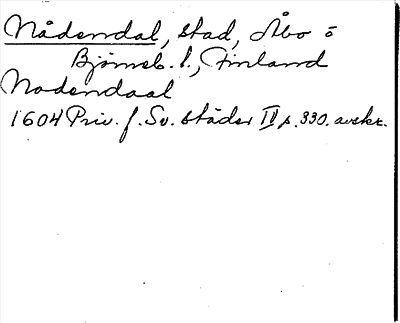 Nådendal, stad, Åbo o
Björneb. l., Finland
Nodendaal
1604 Priv. f. Sv. städer IV s. 330. avskr.